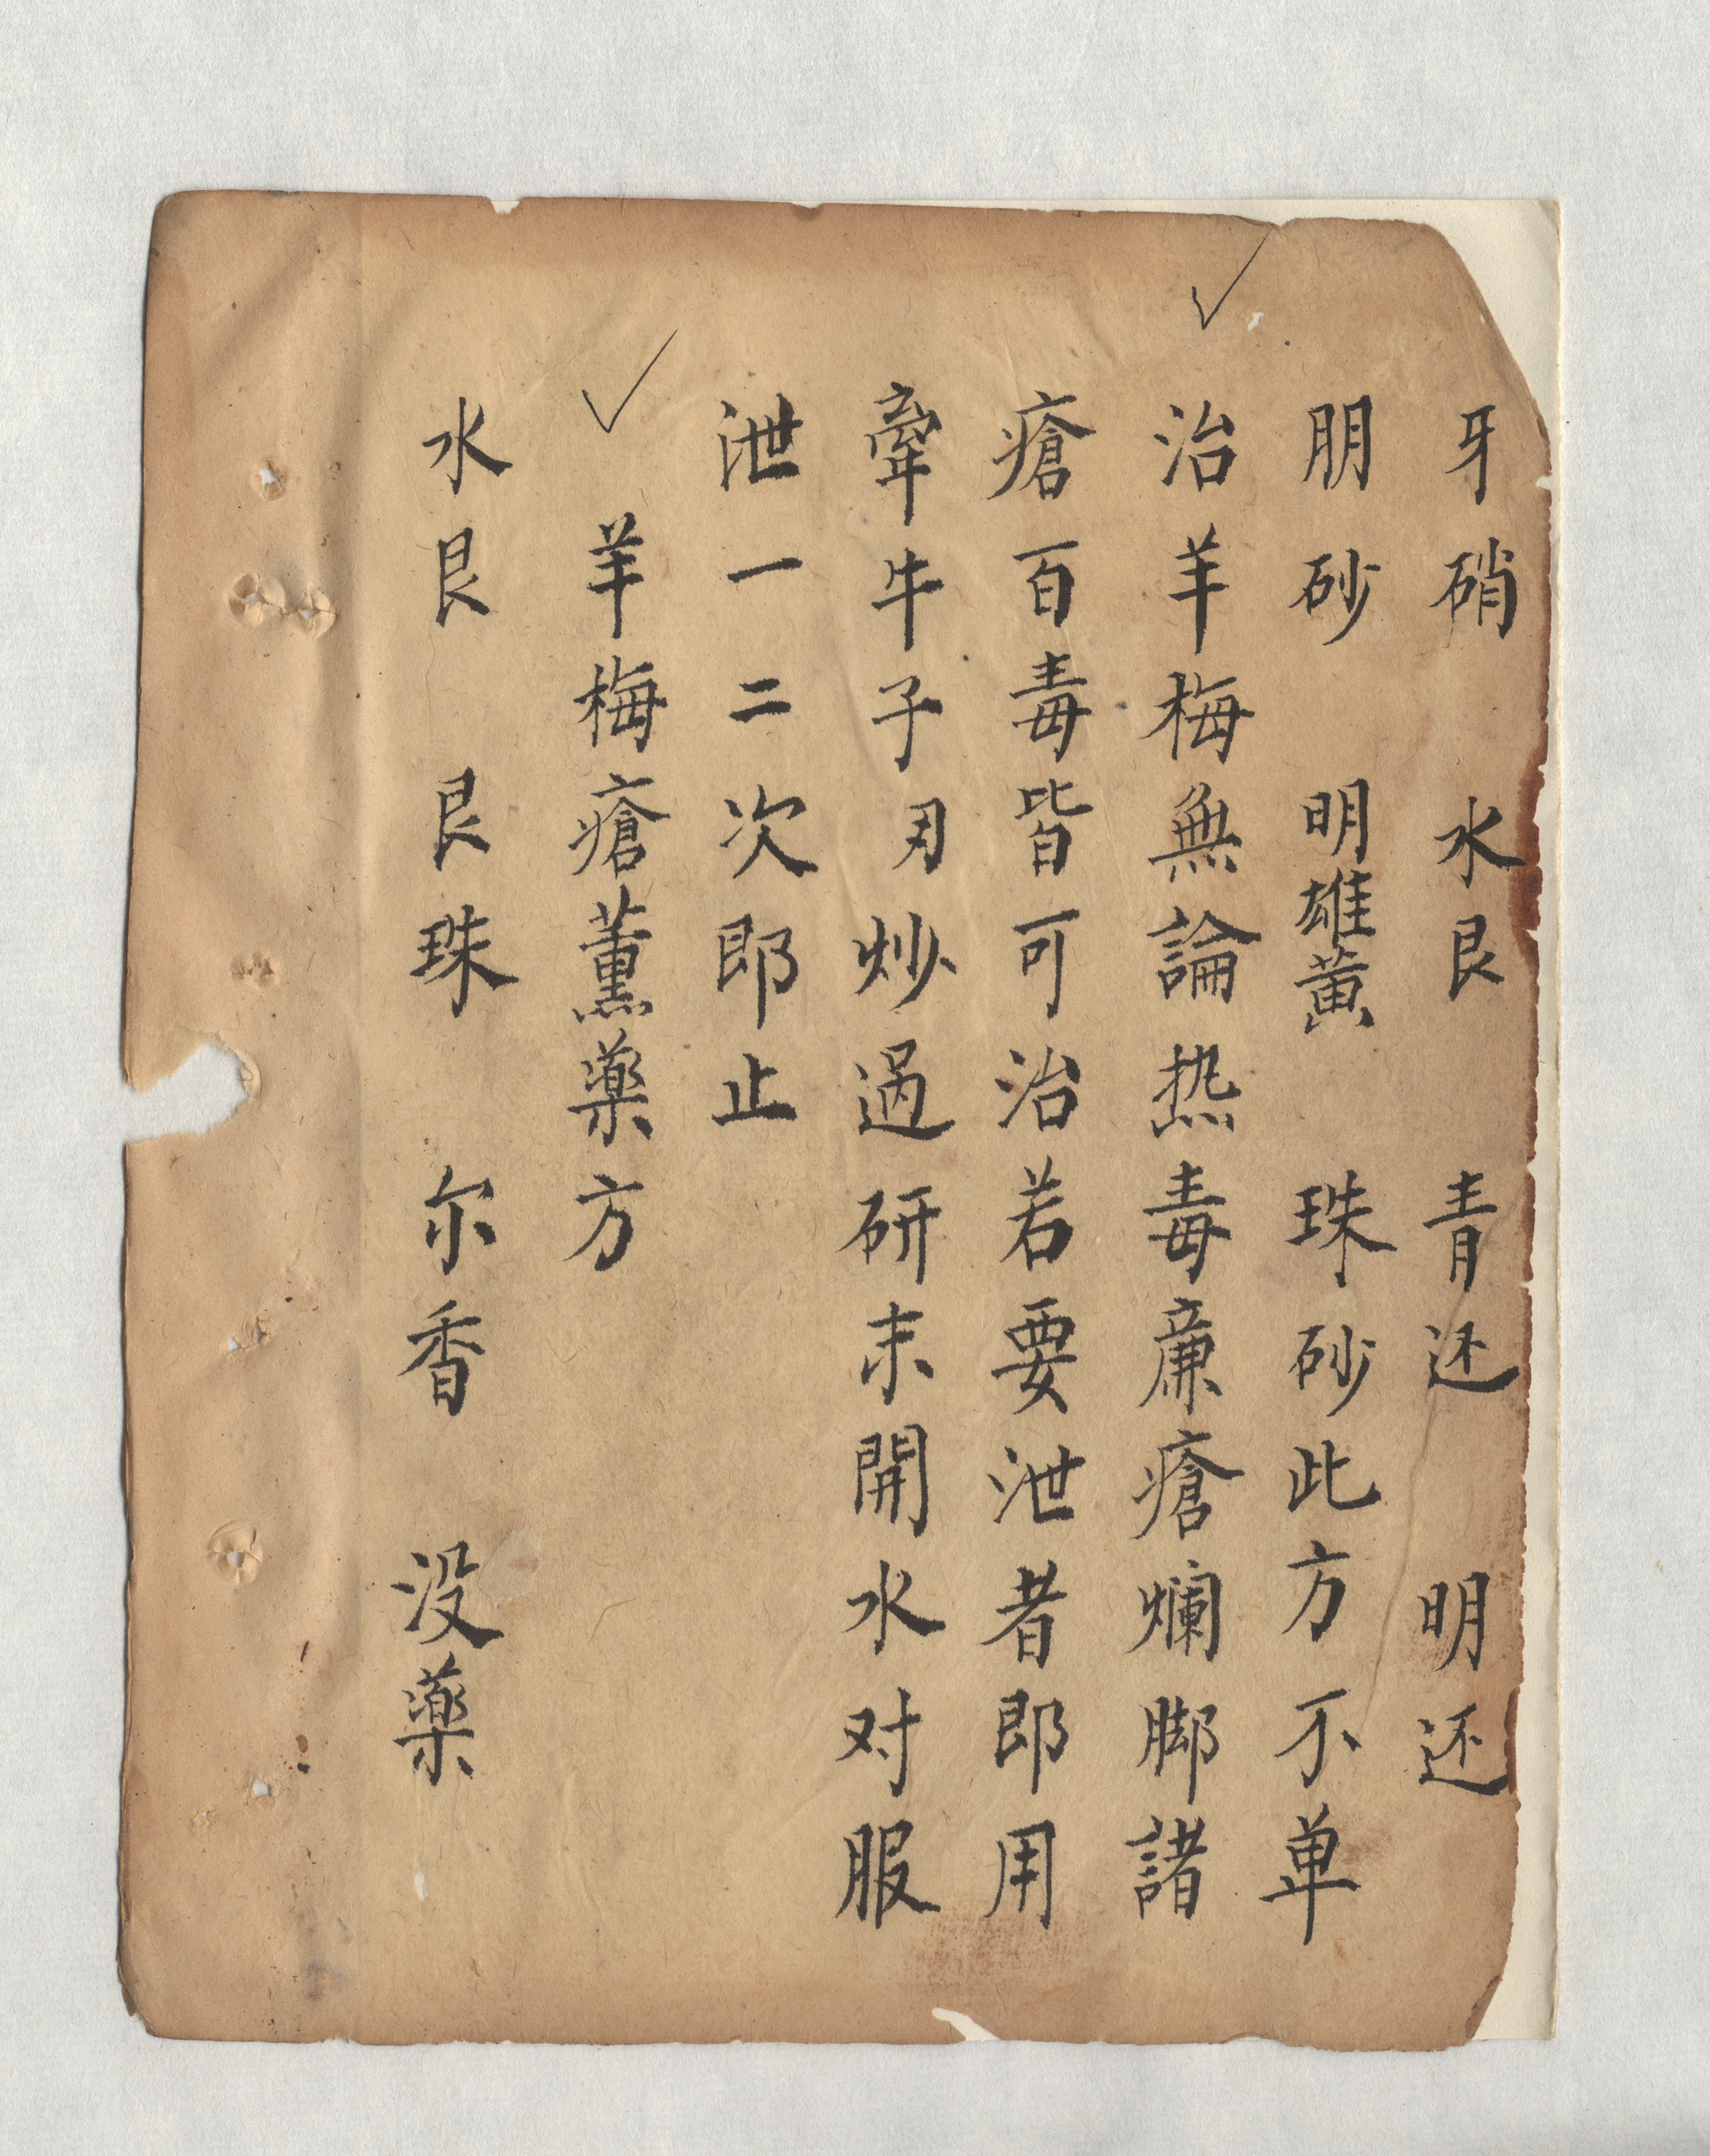 牙硝　水艮　青还　明还
朋砂　明雄黄　珠砂此方不单
治羊梅無論热毒亷瘡爛脚諸
瘡百毒皆可治若要泄者即用
牽牛子刃炒过研末開水对服
泄一二次即止
羊梅瘡薰藥方
水艮　艮珠　尔香　没藥